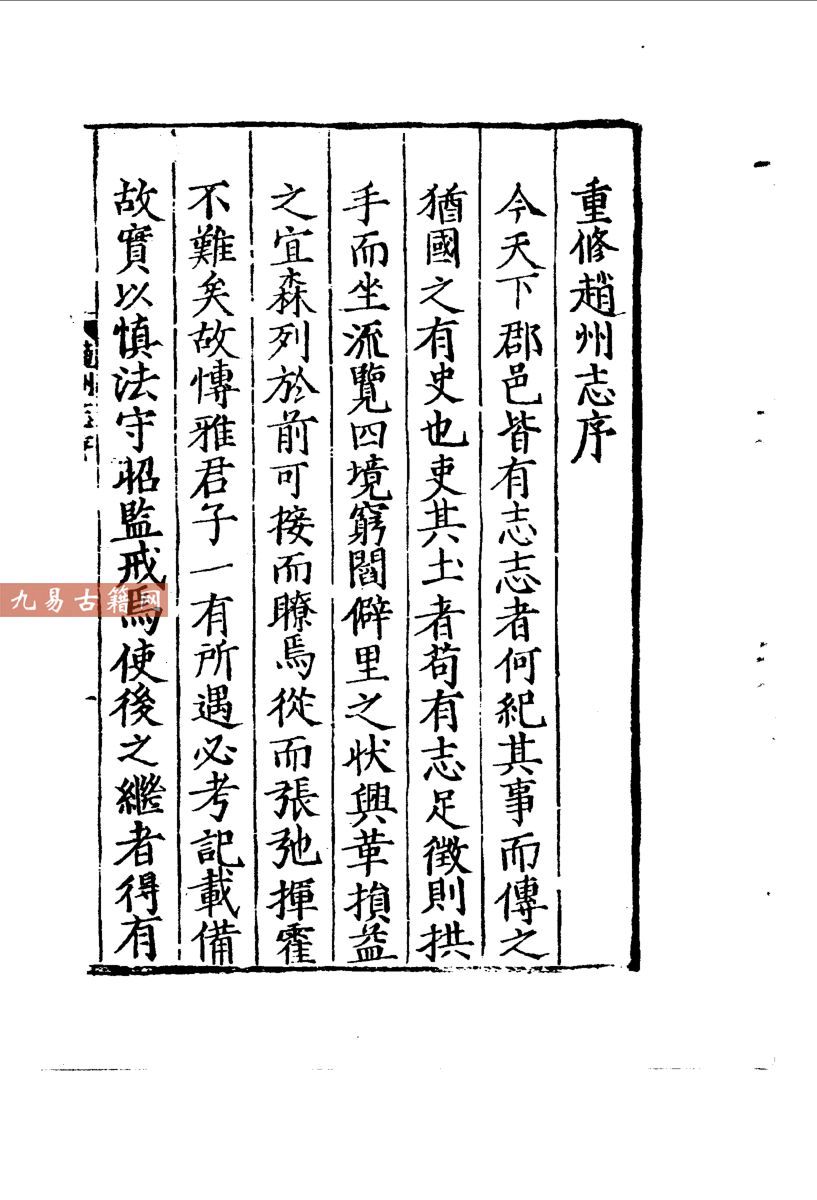 重修趙州志序
今天下郡邑皆有志志者何紀其事而傳之
猶國之有史也吏其土者苟有志足徵則拱
手而坐流覽四境窮閻僻里之状興革損益
之宜森列於前可接而瞭焉從而張弛揮霍
不難矣故慱雅君子一有所遇必考記載備
故實以慎法守昭監戒焉使後之繼者得有
九易古籍网